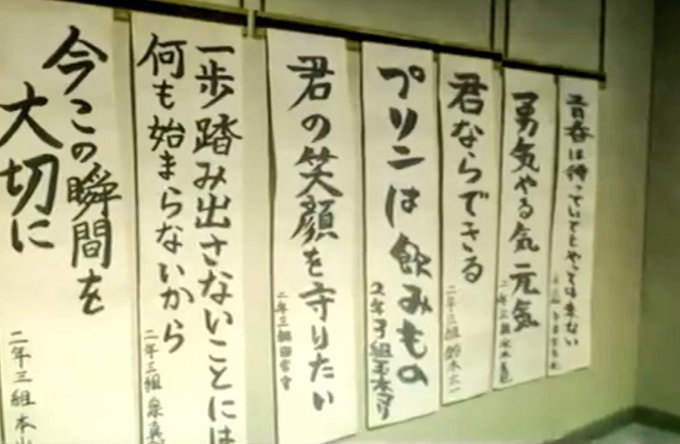 青春は待っていてもやっては来ない
勇気やる気元気
二年三組
君ならできる
二年三組鈴木
プリンは飲みもの
2年3組
君の笑顔を守りたい
二年三組
一歩踏み出さないことには
何も始まらないから
二年三組泉真
今この瞬間を
大切に
二年三組本山